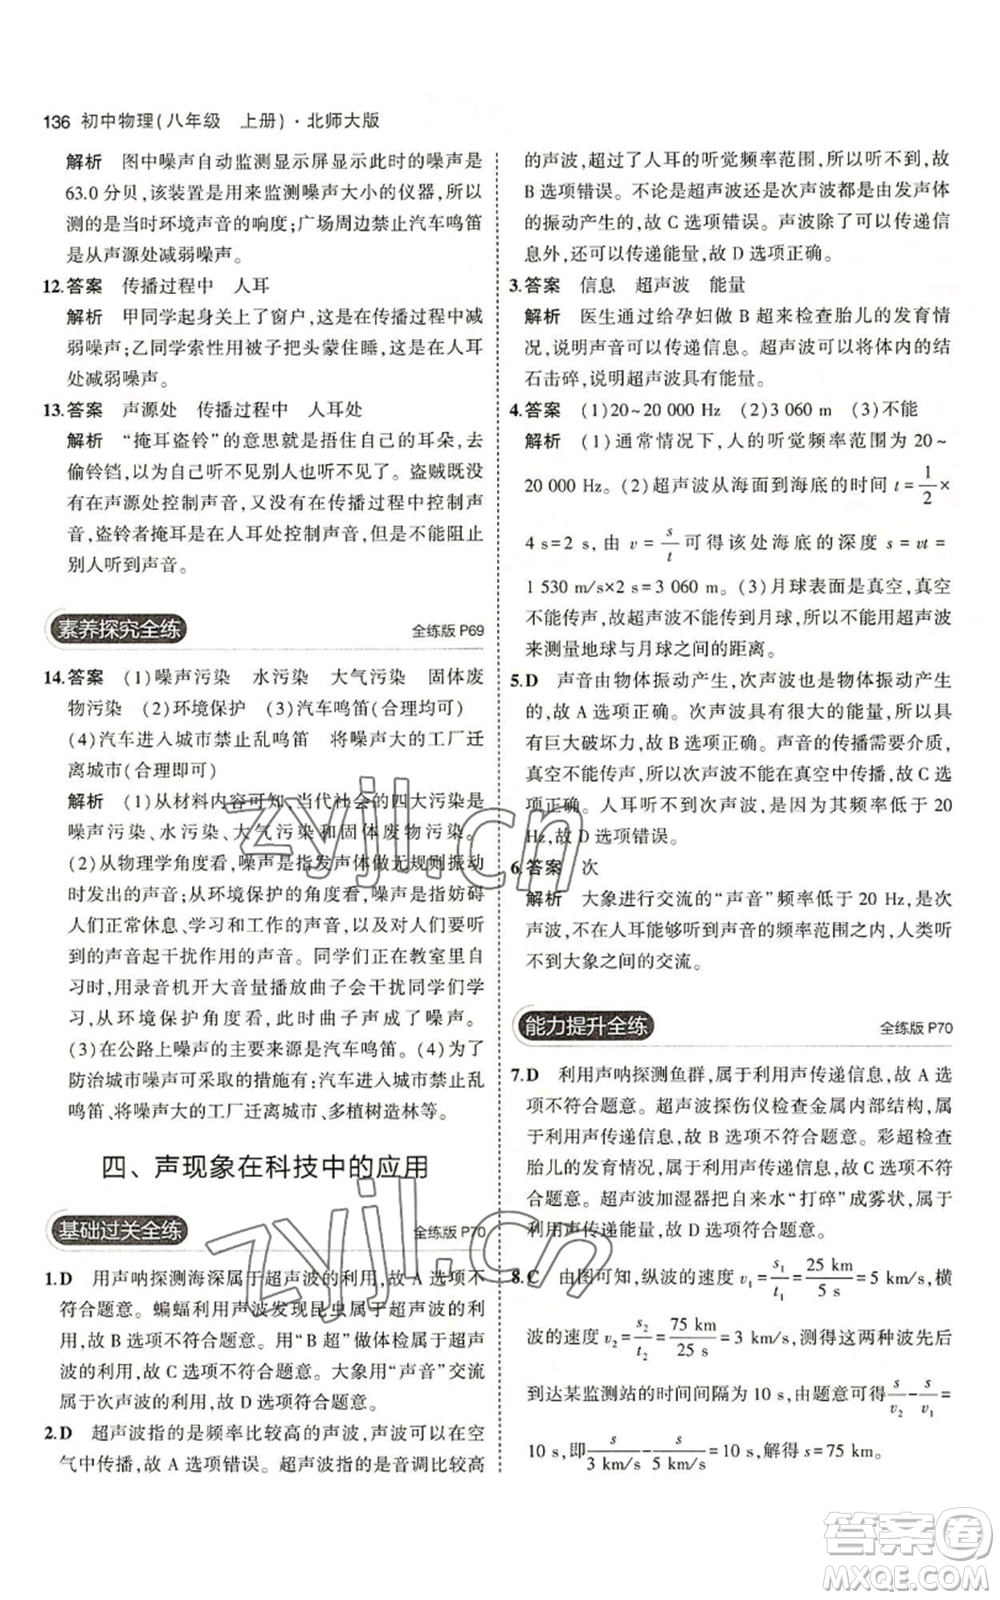 136 初中物理(八年级 上册)·北师大版
解析 图中噪声自动监测显示屏显示此时的噪声是
63.0 分贝,该装置是用来监测噪声大小的仪器,所以
测的是当时环境声音的响度;广场周边禁止汽车鸣笛
是从声源处减弱噪声。
12.答案 传播过程中 人耳
解析 甲同学起身关上了窗户,这是在传播过程中减
弱噪声;乙同学索性用被子把头蒙住睡,这是在人耳
处减弱噪声。
13.答案 声源处 传播过程中 人耳处
解析 “掩耳盗铃”的意思就是捂住自己的耳朵,去
偷铃铛,以为自己听不见别人也听不见了。盗贼既没
有在声源处控制声音,又没有在传播过程中控制声
音,盗铃者掩耳是在人耳处控制声音,但是不能阻止
别人听到声音。
素养探究全练 全练版 P69
14.答案 (1)噪声污染 水污染 大气污染 固体废
物污染 (2)环境保护 (3)汽车鸣笛(合理均可)
(4)汽车进入城市禁止乱鸣笛 将噪声大的工厂迁
离城市(合理即可)
解析 (1)从材料内容可知,当代社会的四大污染是
噪声污染、水污染、大气污染和固体废物污染。
(2)从物理学角度看,噪声是指发声体做无规则振动
时发出的声音;从环境保护的角度看,噪声是指妨碍
人们正常休息、学习和工作的声音,以及对人们要听
的声音起干扰作用的声音。同学们正在教室里自
习时,用录音机开大音量播放曲子并欣赏,影响他人
学习,从环境保护角度看,此时曲子声成了噪声。
(3)在公路上噪声的主要来源是汽车鸣笛。(4)为了
防治城市噪声可采取的措施有:汽车进入城市禁止乱
鸣笛、噪声大的工厂迁离城市、多植树造林等。
四、声现象在科技中的应用
基础过关全练 全练版 P70
1.D 用声呐探测海深属于超声波的利用,故 A 选项不
符合题意。蝙蝠利用声波发现昆虫属于超声波的利
用,故 B 选项不符合题意。用“B 超”做体检属于超声
波的利用,故 C 选项不符合题意。大象用“声音”交流
属于次声波的利用,故 D 选项符合题意。
2.D 超声波指的是频率比较高的声波,声波可以在空
气中传播,故 A 选项错误。超声波指的是音调比较高
的声波,超过了人耳的听觉频率范围,所以听不到,故
B 选项错误。不论是超声波还是次声波都是由发声体
的振动产生的,故 C 选项错误。声波除了可以传递信
息外,还可以传递能量,故 D 选项正确。
3.答案 信息 超声波 能量
解析 医生通过给孕妇做 B 超来检查胎儿的发育情
况,说明声音可以传递信息。超声波可以将体内的结
石击碎,说明超声波具有能量。
4.答案 (1)20~20 000 Hz (2)3 060 m (3)不能
解析 (1)通常情况下,人的听觉频率范围为 20~
20 000 Hz。(2)超声波从海面到海底的时间 t=1/2×
4 s=2 s,由 v=s/t可得该处海底的深度 s=vt=
1 530 m/s×2 s=3 060 m。(3)月球表面是真空,真空
不能传声,所以超声波不能传到月球,不能用超声波
测量地球与月球之间的距离。
5.D 声音由物体振动产生,次声波也是物体振动产生
的,故 A 选项正确。次声波具有很大的能量,所以具
有巨大破坏力,故 B 选项正确。声音的传播需要介质,
真空不能传声,所以次声波不能在真空中传播,故 C 选
项正确。人耳听不到次声波,是因为其频率低于 20
Hz,故 D 选项错误。
6.答案 次
解析 大象进行交流的“声音”频率低于 20 Hz,是次
声波,不在人耳能够听到声音的频率范围内,人类听
不到大象之间的交流。
能力提升全练 全练版 P70
7.D 利用声呐探测鱼群,属于利用声传递信息,故 A 选
项不符合题意。超声波探伤仪检查金属内部结构,属
于利用声传递信息,故 B 选项不符合题意。彩超检查
胎儿的发育情况,属于利用声传递信息,故 C 选项不
符合题意。超声波加湿器把自来水“打碎”成雾状,属于
利用声传递能量,故 D 选项符合题意。
8.C 由图可知,纵波的速度 v₁=s₁/t₁=25 km/5 s=5 km/s,横
波的速度 v₂=s₂/t₂=75 km/25 s=3 km/s,测得这两种波先后
到达某监测站的时间间隔为 10 s,由题意可得s/v₂-s/v₁=
10 s,即s/3 km/s-s/5 km/s=10 s,解得 s=75 km。
zyjl.cn
zyjl.cn
答案圈
MXQE.COM